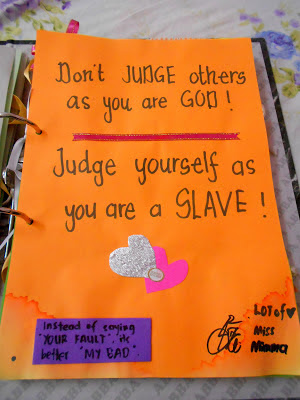 Don't JUDGE others
as you are GOD !
Judge yourself as
you are a SLAVE !
Instead of saying
"YOUR FAULT", its
better "MY BAD".
LOT of ♥
Miss